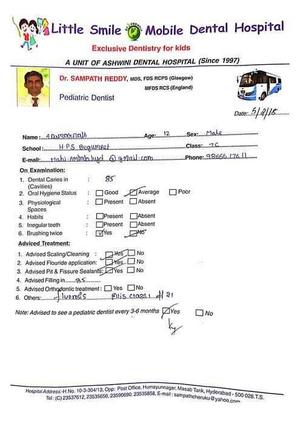 Little Smile Mobile Dental Hospital
Exclusive Dentistry for kids
A UNIT OF ASHWINI DENTAL HOSPITAL (Since 1997)
Dr. SAMPATH REDDY, MDS, FDS RCPS (Glasgow)
MFDS RCS (England)
Pediatric Dentist
Date: 5/2/15
Name: Age: 12 Sex: Male
School: H P S Begumpet Class: 7C
E-mail: @gmail.com Phone:
On Examination:
1. Dental Caries in (Cavities) : 85
2. Oral Hygiene Status : Good Average Poor
3. Physiological Spaces : Present Absent
4. Habits : Present Absent
5. Irregular teeth : Present Absent
6. Brushing twice : Yes No
Adviced Treatment:
1. Advised Scaling/Cleaning : Yes No
2. Advised Flouride application: Yes No
3. Advised Pit & Fissure Sealants Yes No
4. Advised Filling in 85
5. Advised Orthodontic treatment : Yes No
6. Others: 21
Note: Advised to see a pediatric dentist every 3-6 months Yes No
Hospital Address: H.No. 10-3-304/13, Opp: Post Office, Humayunnagar, Masab Tank, Hyderabad - 500 028.T.S.
Tel: (C) 23537612, 23535656, 23590690, 23535858, E-mail : sampathcheruku@yahoo.com